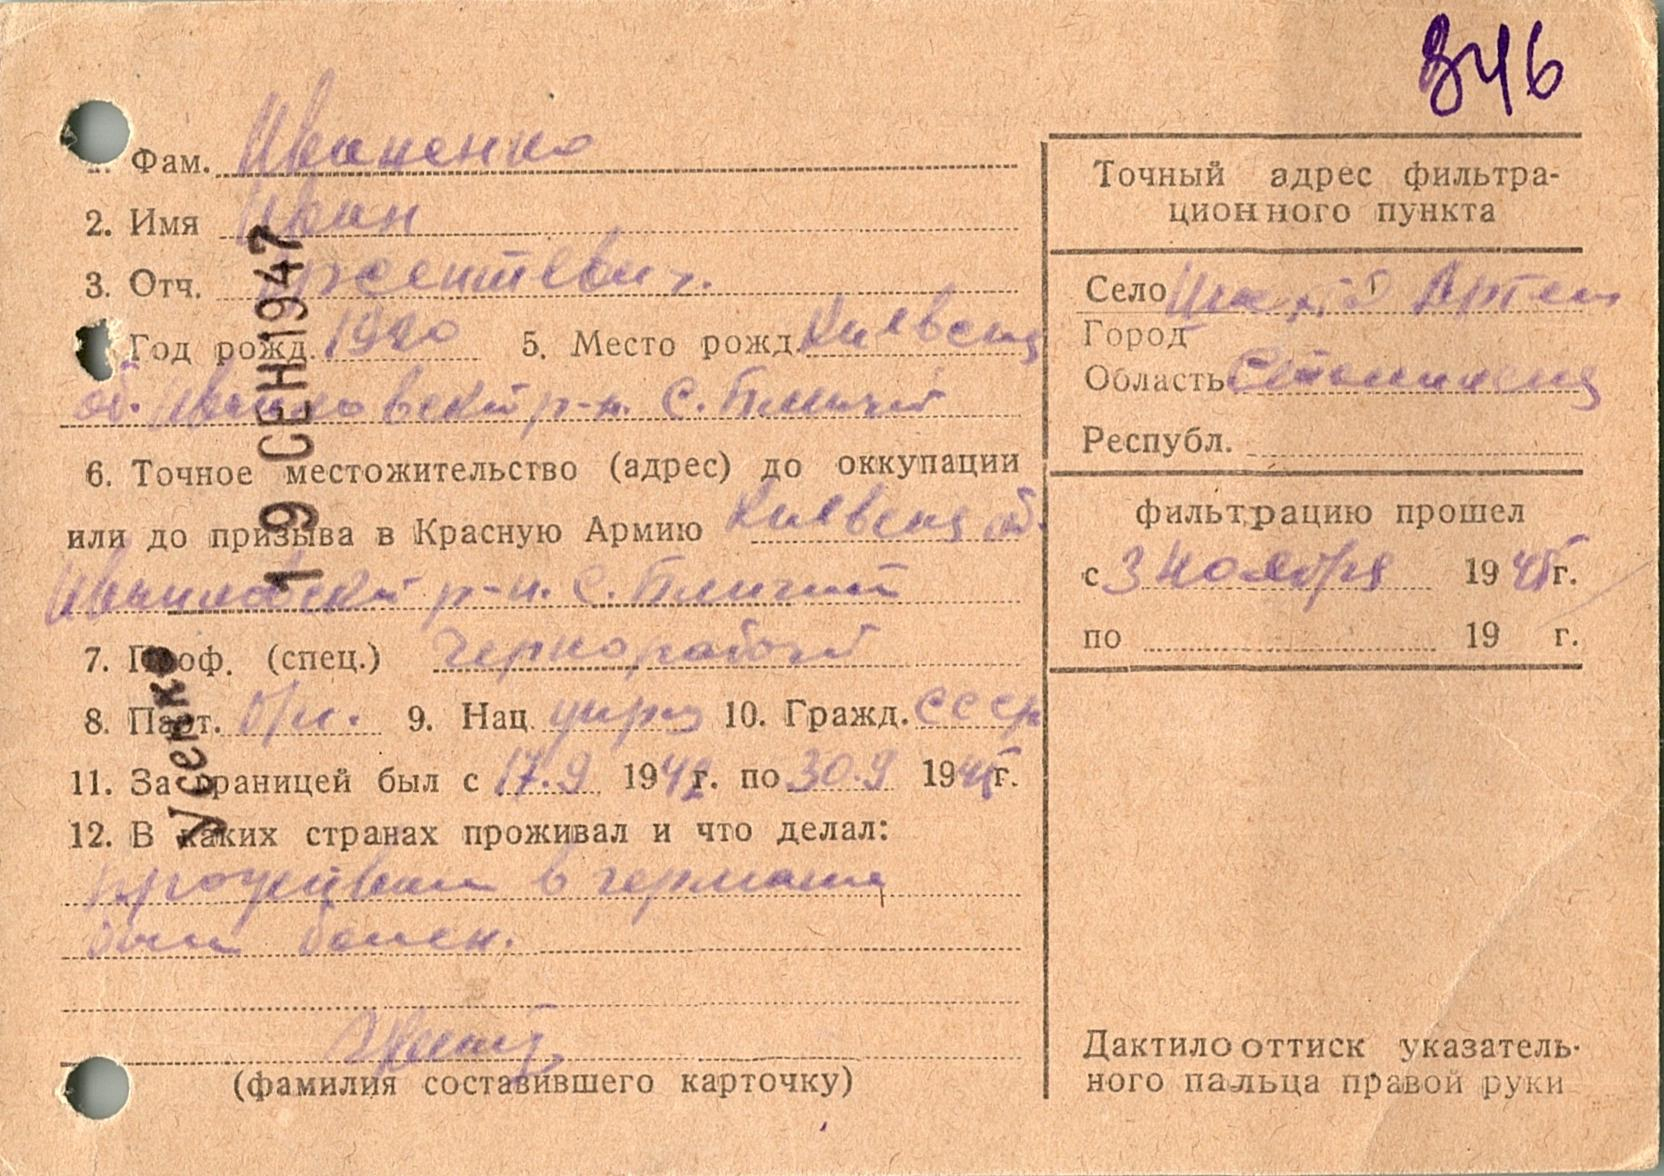 846
Фам. Иваненко
2. Имя Иван
3. Отч.
Год рожд. 1920 5. Место рожд. Киевская
об. Иванковский р-н. с.
6. Точное местожительство (адрес) до оккупации
или до призыва в Красную Армию Киевская об.
Иванковский р-н. с.
7. Проф. (спец.) чернорабочий
8. Парт. б/п. 9. Нац. укр 10. Гражд. СССР
11. За границей был с 17.9 1942 г. по 30.9 1945 г.
12. В каких странах проживал и что делал:
проживал в германии
был болен.
(фамилия составившего карточку)
19 СЕН 1947
Усенко
Точный адрес фильтра-
ционного пункта
Село Артем
Город
Область Сталинская
Республ.
фильтрацию прошел
с 3 ноября 1945 г.
по 19 г.
Дактилооттиск указатель-
ного пальца правой руки